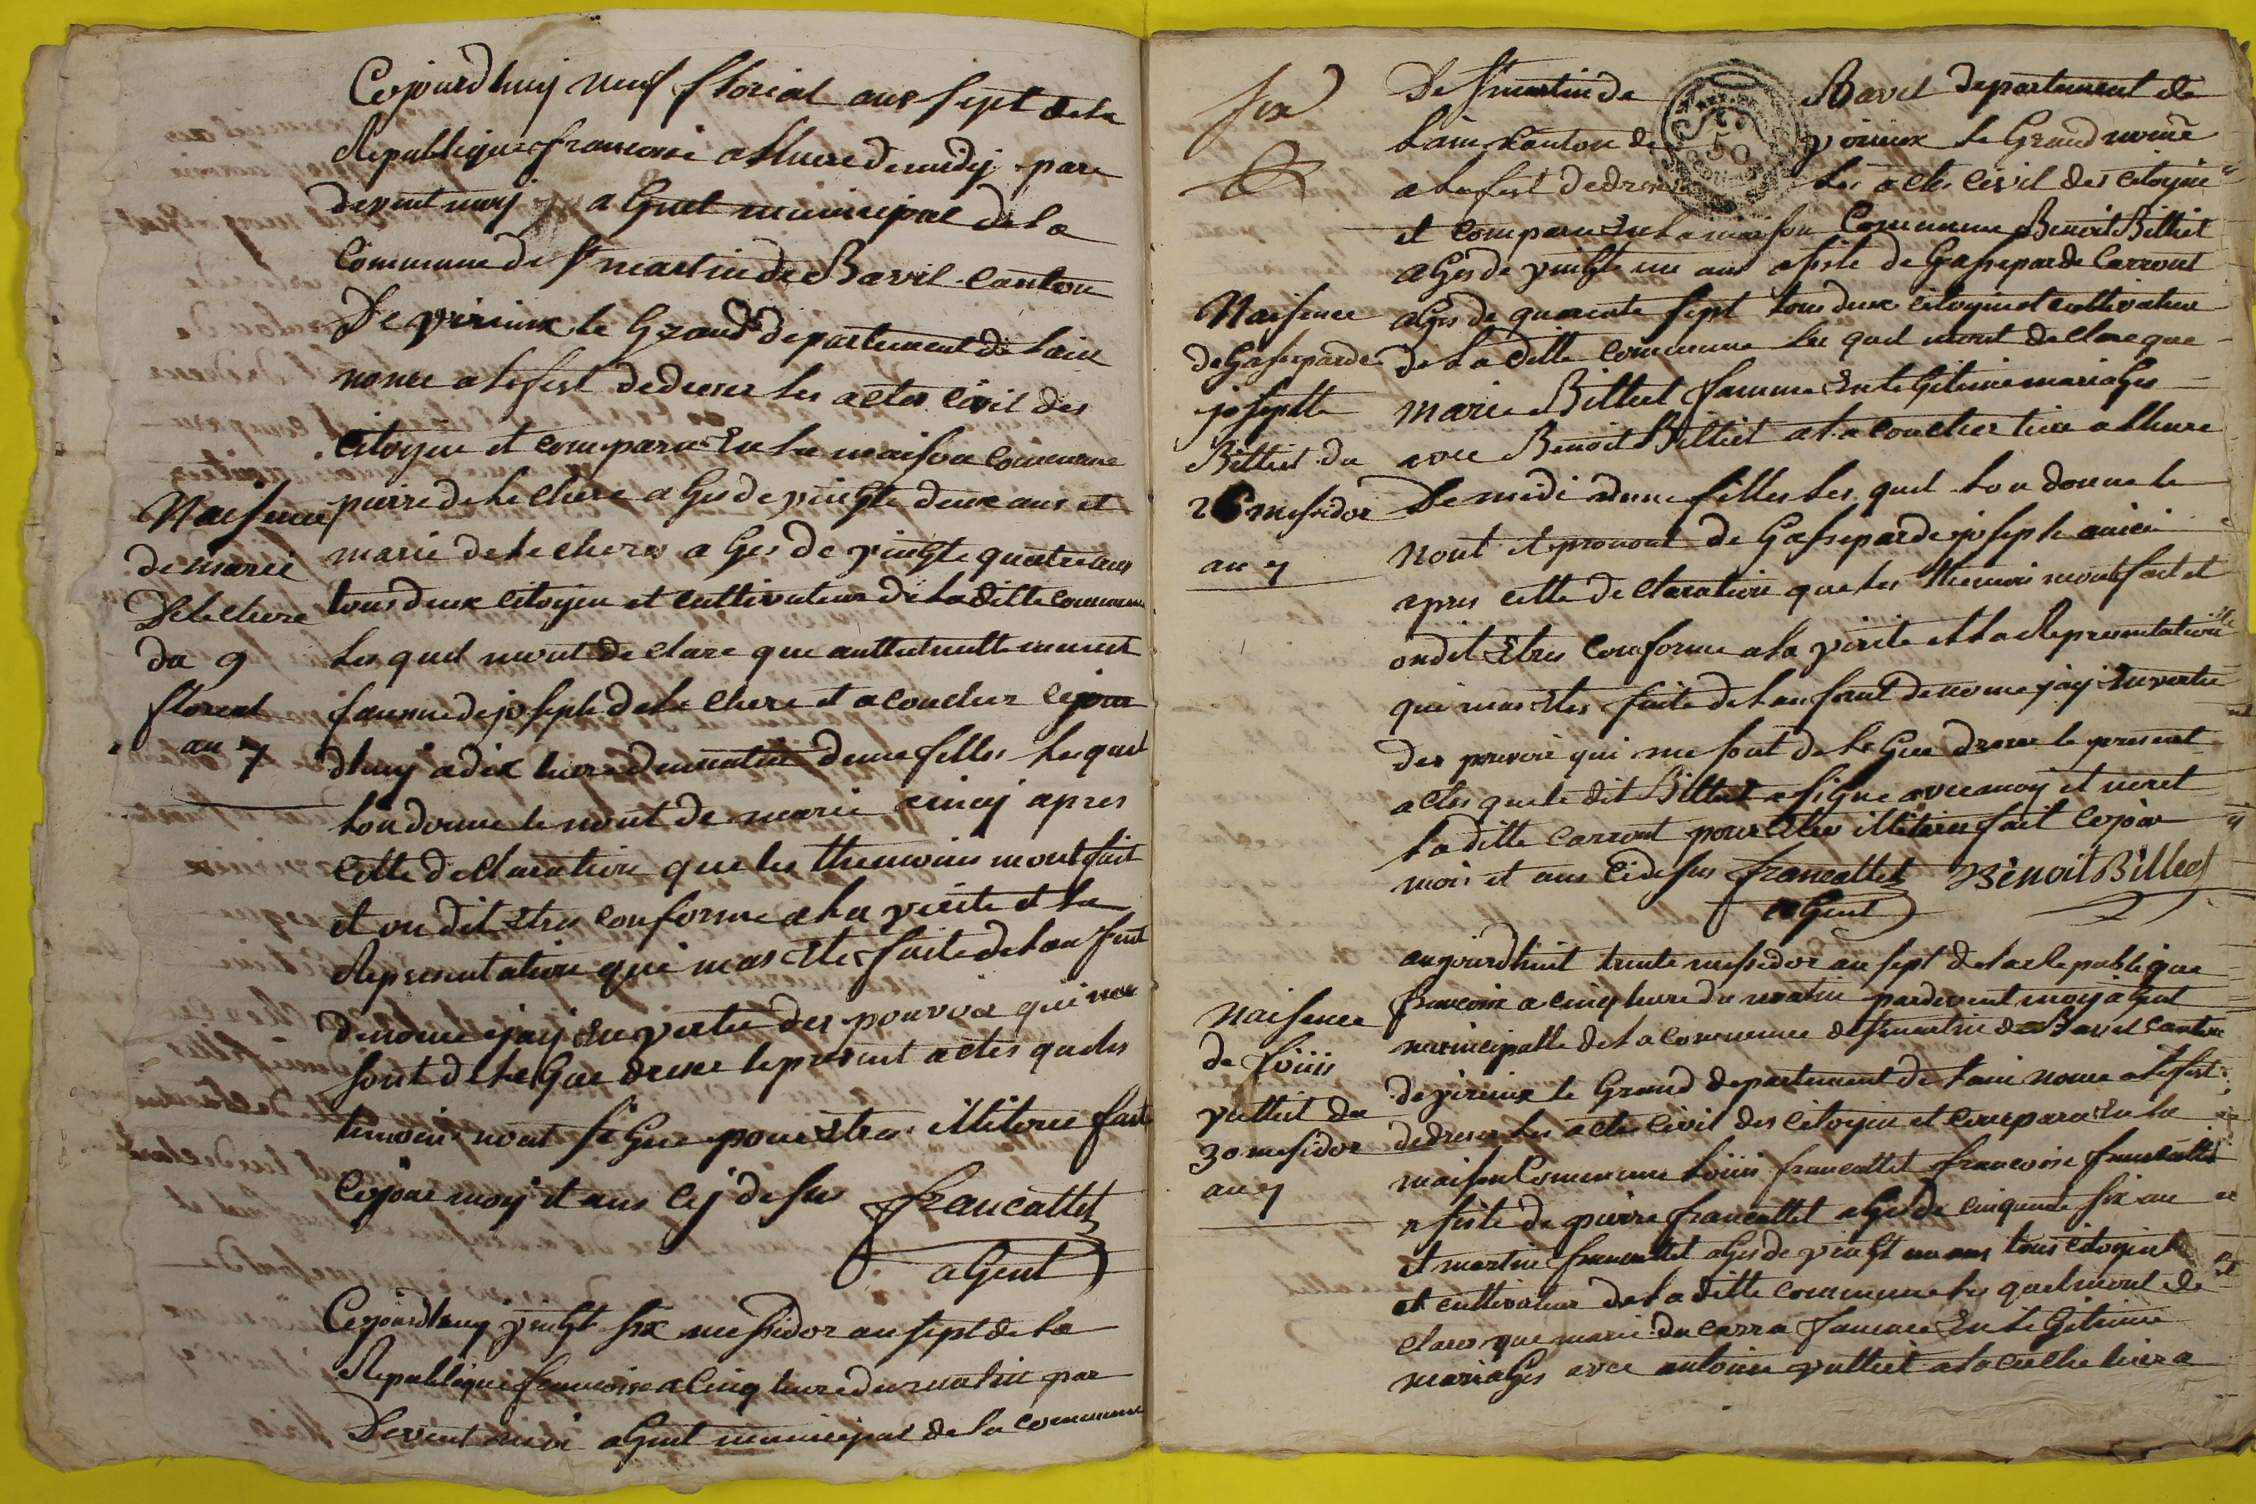 Cejourdhuij neuf florial ans sept dela
Republique francoise a lheure de midij par
devent moij agent municipal dela
Commune de St martin de Bavel canton
De virieux le Grand departement de lain
nome a lefest dedreser les actes civil des
citoyen et compara en la maison commune
pierre delechere ages de vingte deux ans et
marie delecheres ages de vingte quatre ans
tous deux citoyen et cultivateur de la ditte commune
les quel mont de clare que
famme de joseph delechere et a coucher cejour
dhuij a dix heure du matin dune filles les quel
lon donne le nont de marie aincij apres
cette de claration que les themoins mont fait
et on dit etres conforme a la verite et la
Representation qui mas etes faite de lan fent
denome jaij en vertu des pouvoir qui me
sont de le Gue dreser le present actes que les
temoins nont si Gne pour etres illitere fait
cejour moij et ans cij desus francattet
agent
Naisence
de marie
Delechere
du 9
florial
an 7
Cejourdhuij vingt six messidor an sept de la
Republique francoise a cinq heure du matin par
Devent moi agent municipal de la commune
six
De St martin de Bavel departement de
lain canton de virieux le Grand nome
a lefest dedreser les actes civil des citoyen
et compara en la maison Commune Benoit Billiet
ages de vingte un ans asiste de Gasparde Carront
ages de quarente sept tous deux citoyen et cultivateur
de la ditte commune les quel mont de clare que
marie Billiet famme en legitime mariages
avec Benoit Billiet a la coucher hier a lheure
De midi dune filles les quel lon donne le
nont et pronont de Gasparde josephe ainci
apres cette de claration que les themoin mont fait et
on dit etres conforme a la verite et la Representation
qui mas etes faite de lanfant denome jaij en vertu
des pouvoir qui me sont de le Gue dreser le present
actes que le dit Billiet a signe avec moij et non et
la ditte carront pour etres illiteres fait cejour
mois et ans ci desus francattet Benoit Billiet
agent
Naisence
de Gasparde
josephte
Billiet du
26 messidor
an 7
aujourdhuit trente messidor an sept de la Republique
francoise a cinq heure du matin pardevent moij agent
municipalle de la commune de St martin de Bavel canton
de virieux le Grand departement de lain nome a lefest
dedreser les acte civil des citoyen et compara en la
maison Commune louis francattet francoise francattet
asiste de pierre francattet ages de cinquente six ans
et martin francattet ages de vingt un ans tous citoyent
et cultivateur de la ditte commune les quel mont de
clare que marie du carra famme en le Gitime
mariages avec antoine vuttiet a la cucher hier a
Naisence
de louis
vuttiet du
30 mesidor
an 7